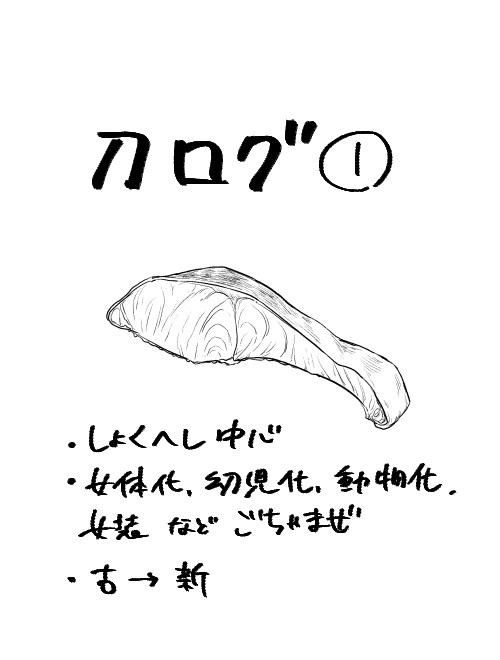 刀ログ①
・しょくへし中心
・女体化、幼児化、動物化、
女装 など ごちゃまぜ
・古→新